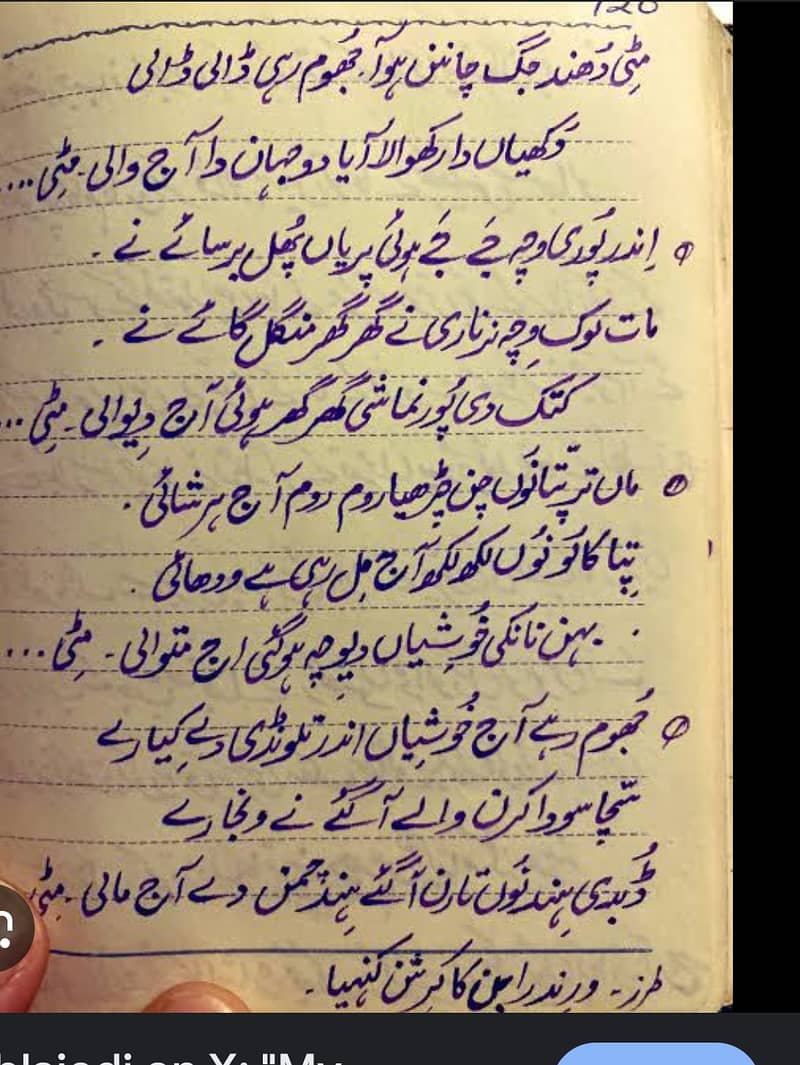 مٹی دُھند جگ چانن ہوآ۔ جُھوم رہی ڈالی ڈالی
دَکھیاں دا رکھوالا آیا دو جہان دا آج والی۔ مٹی....
اِندر پُوری وچہ جَے جَے ہوئی پریاں پُھل برسائے نے۔
مات لوک وِچہ نر ناری نے گھر گھر منگل گائے نے۔
کَتک دی پُورنماشی گھر گھر ہوئی آج دِیوالی۔ مٹی...
ماں ترپتا نُوں چن چڑھیا روم روم آج ہرشائی۔
پِتا کالُو نُوں لکھ لکھ آج مِل رہی ہے ودھائی۔
بہن نانکی خُوشیاں دیوچہ ہوگئی اج متوالی۔ مٹی...
جُھوم رہے آج خُوشیاں اندر تلونڈی دے کیارے
سچا سودا کرن والے آگئے نے ونجارے
ڈُبدی ہِند نُوں تارن آگئے ہِند چمن دے آج مالی۔ مٹی
طرز۔ ورِندرابن کا کرِشن کنہیا۔
X: "My